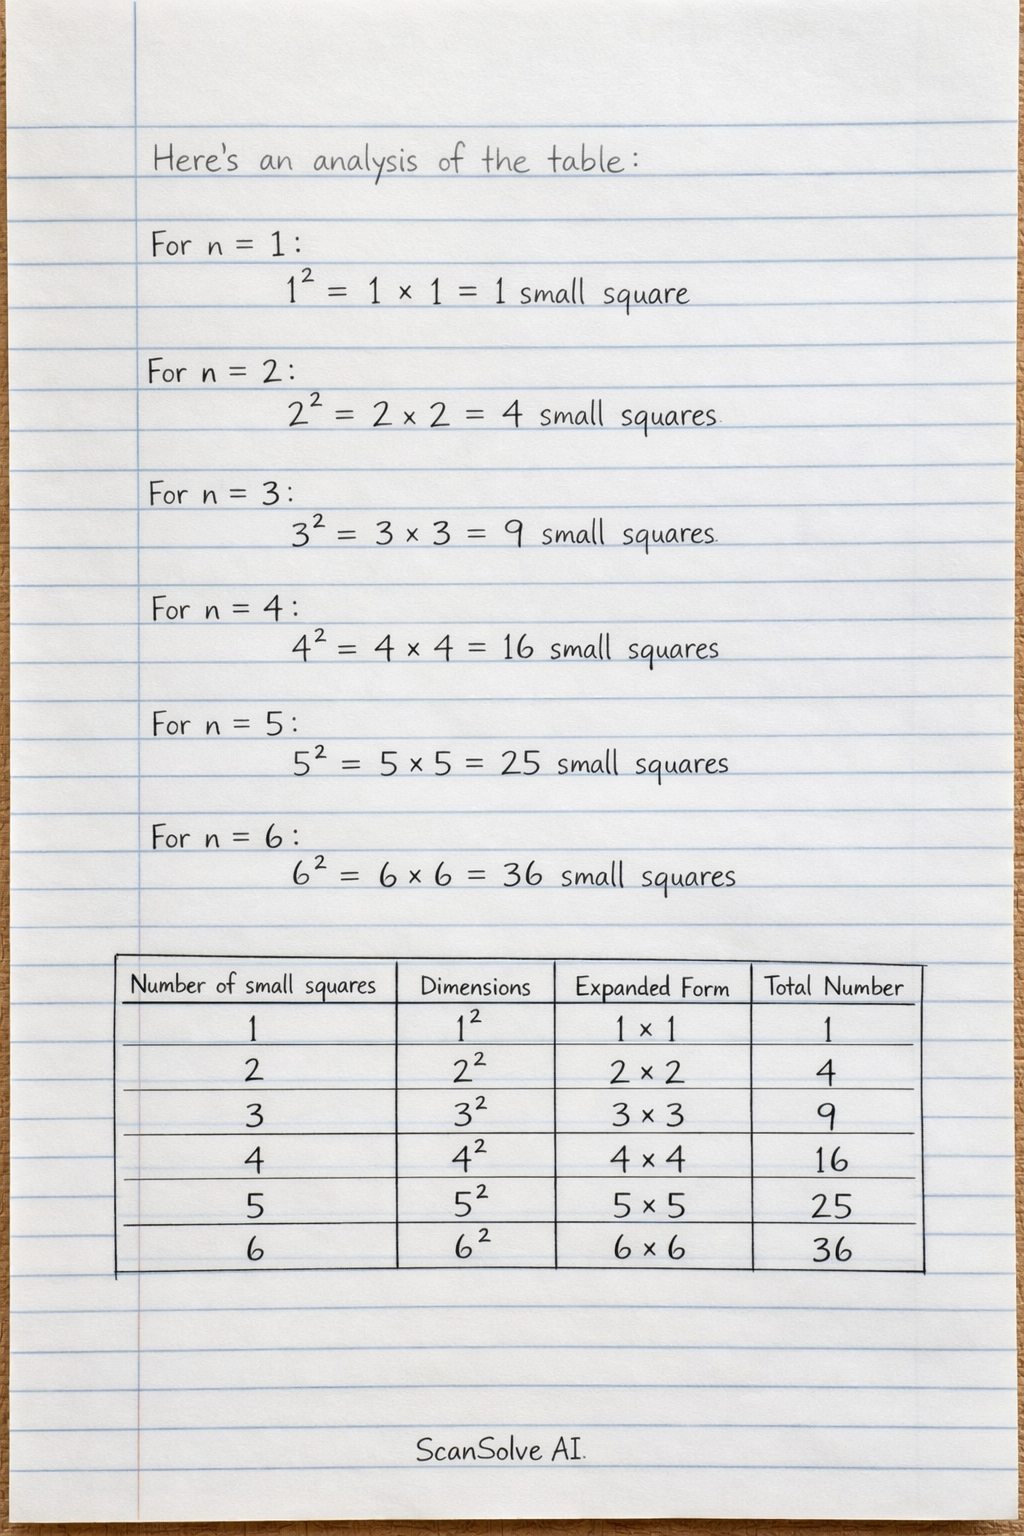 Here's an analysis of the table:
For n = 1:
1² = 1 × 1 = 1 small square
For n = 2:
2² = 2 × 2 = 4 small squares.
For n = 3:
3² = 3 × 3 = 9 small squares.
For n = 4:
4² = 4 × 4 = 16 small squares
For n = 5:
5² = 5 × 5 = 25 small squares
For n = 6:
6² = 6 × 6 = 36 small squares
Number of small squares Dimensions Expanded Form Total Number
1 1² 1 × 1 1
2 2² 2 × 2 4
3 3² 3 × 3 9
4 4² 4 × 4 16
5 5² 5 × 5 25
6 6² 6 × 6 36
ScanSolve AI.